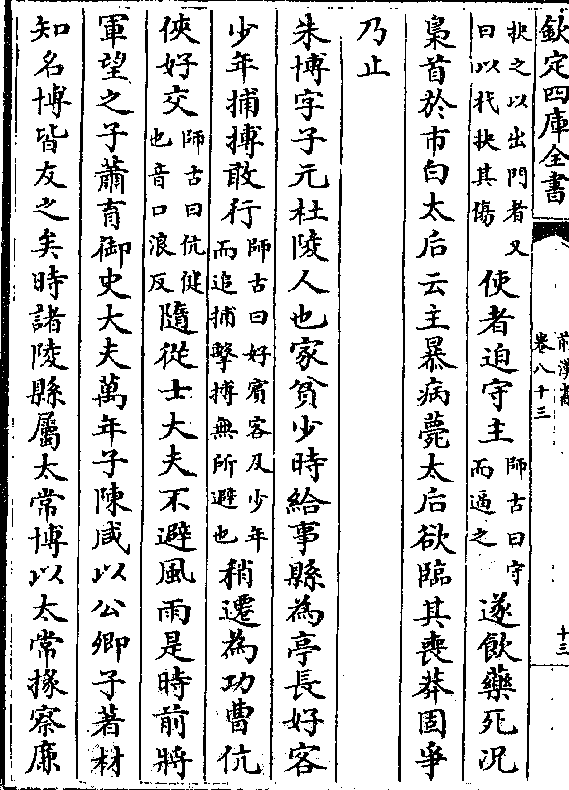 欽定四庫全書
前漢書
卷八十三
十三
抉之以出門者又
曰以杙抉其傷
使者迫守主
師古曰守
而逼之
遂飲藥死况
梟首於市白太后云主暴病薨太后欲臨其喪莽固爭
乃止
朱博字子元杜陵人也家貧少時給事縣為亭長好客
少年捕搏敢行
師古曰好賓客及少年
而追捕擊搏無所避也
稍遷為功曹伉
俠好交
師古曰伉健
也音口浪反
隨從士大夫不避風雨是時前將
軍望之子蕭育御史大夫萬年子陳咸以公卿子著材
知名博皆友之矣時諸陵縣屬太常博以太常掾察廉